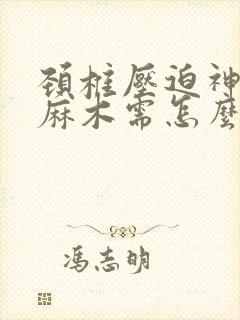 頸椎壓迫神
麻木需怎麼
馮志明